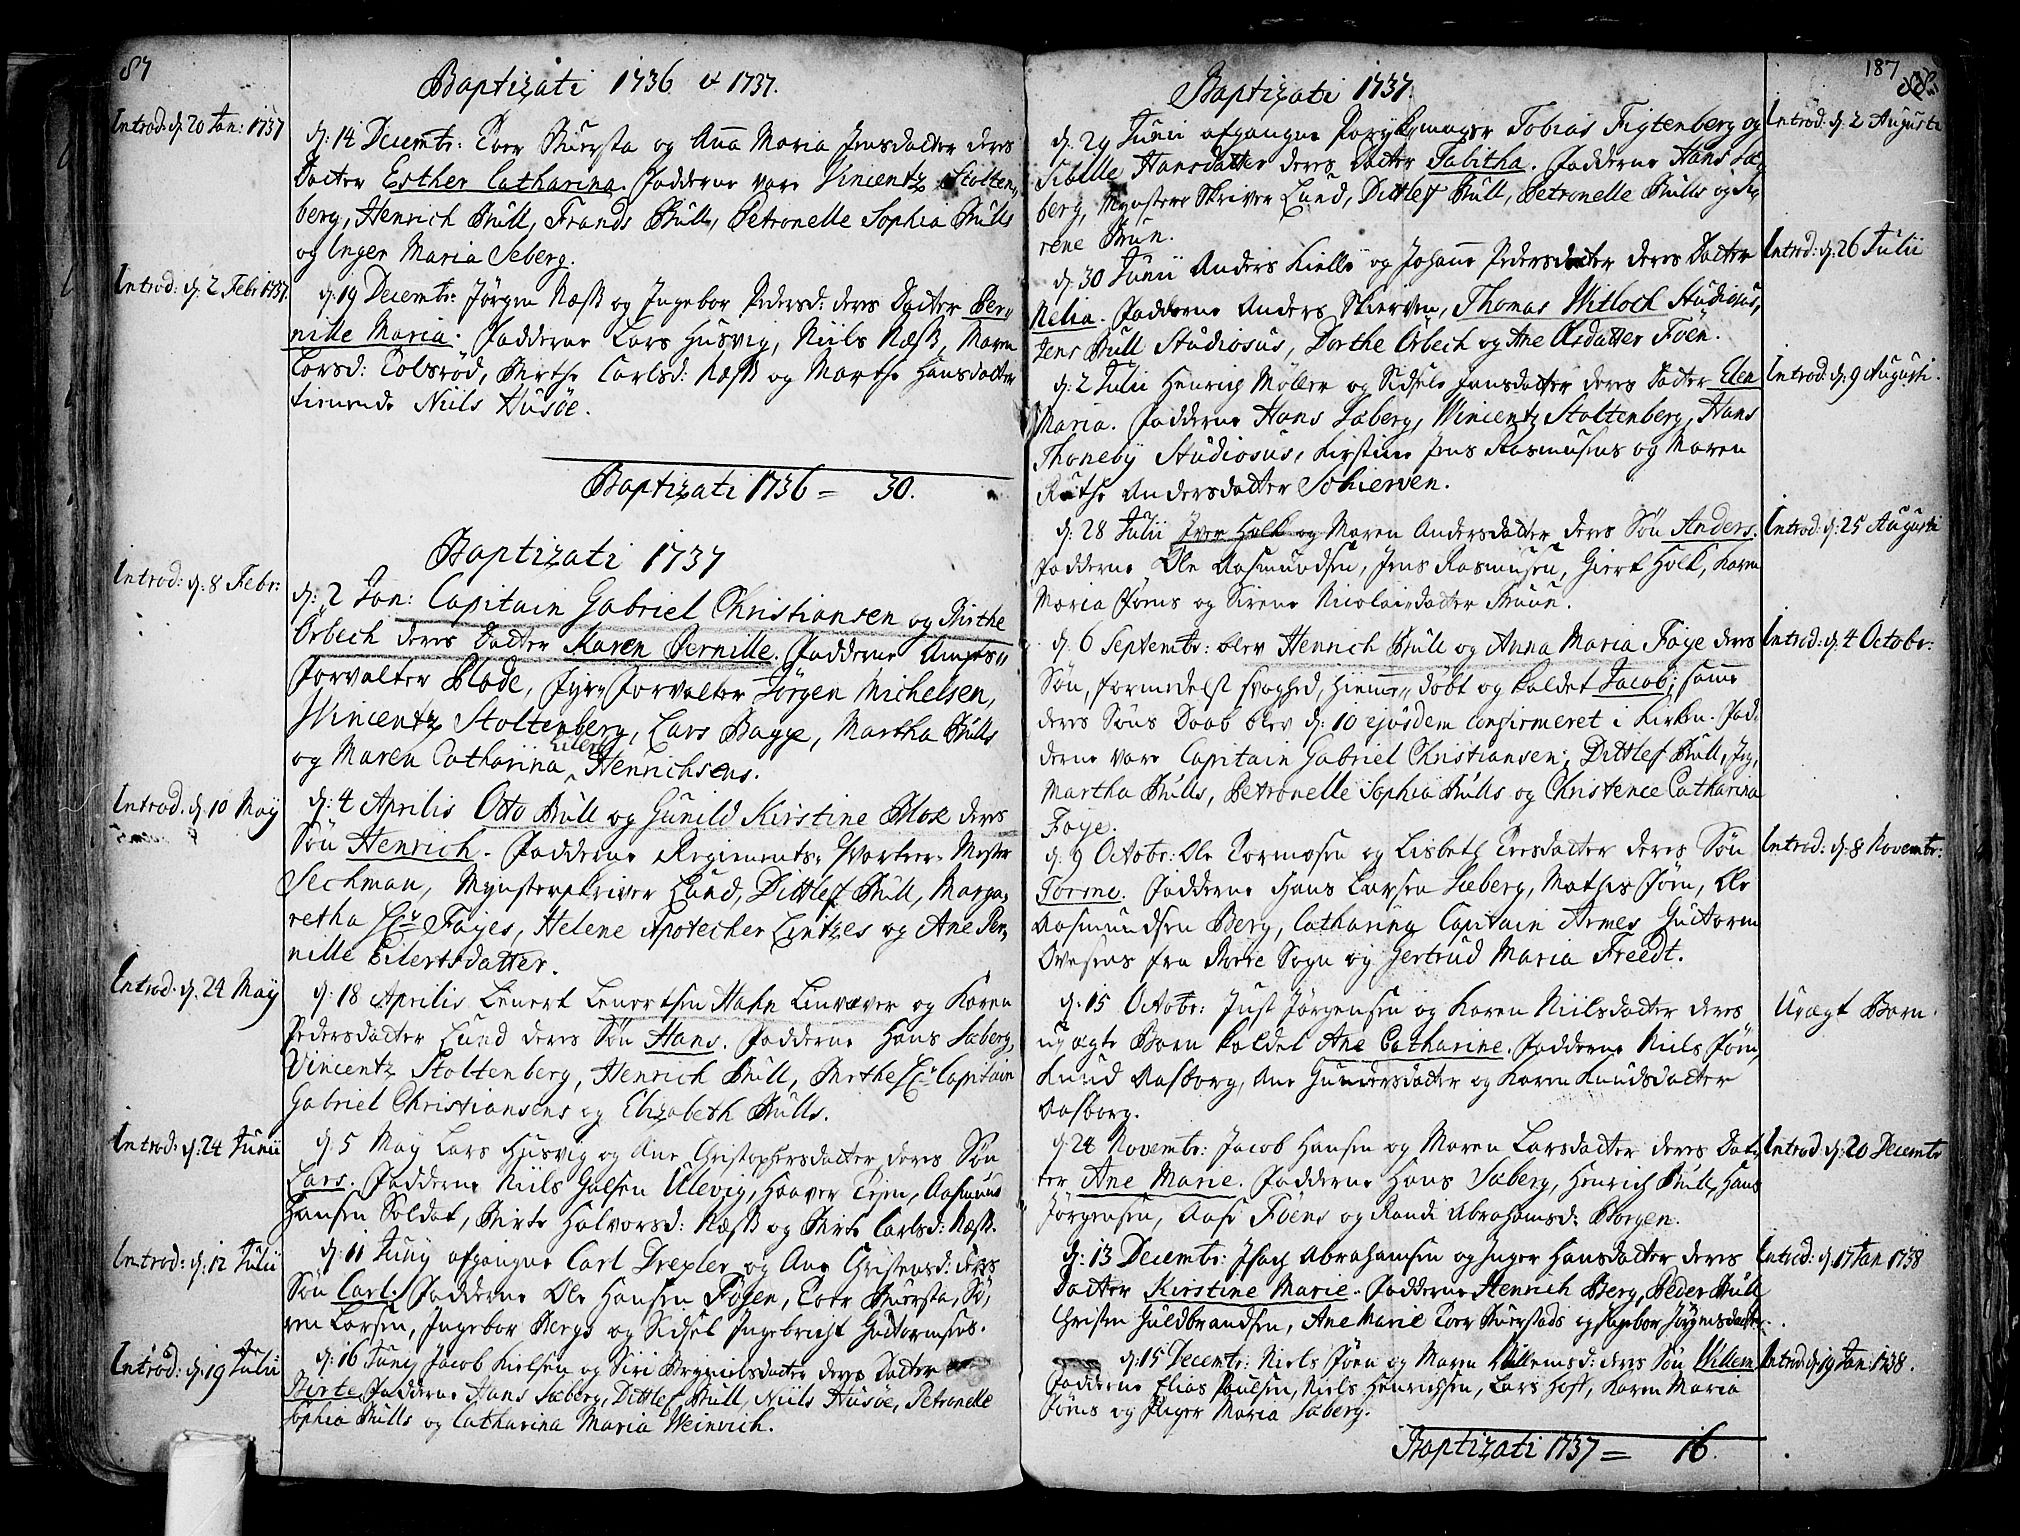 87
Baptizati 1736 & 1737.
Introd: d. 20 Jan: 1737
d: 14 Decembr: Toer Buersta og Aña Maria Jensdatter deres
Datter Esther Catharina. Fadderne vare Vincentz Stolten„
berg, Henrich Bull, Frands Bull, Petronelle Sophia Bulls
og Inger Maria Seberg.
Introd: d. 2 Febr 1737.
d: 19 Decembr: Jørgen Næss og Ingebor Pedersd: deres Datter Per„
nille Maria. Fadderne Lars Husvig, Niils Næss, Maren
Larsd: Tolsrød, Birthe Carlsd: Næss og Marthe Hansdatter
tienende Niils Husøe.
Baptizati 1736 = 30.
Baptizati 1737
Introd: d: 8 Febr:
d: 2 Jan: Capitain Gabriel Christiansen og Birthe
Orbech deres Datter Karen Pernille. Fadderne Ampts„
Forvalter Blode, Fyr„Forvalter Jørgen Michelsen,
Wincentz Stoltenberg, Lars Bagge, Martha Bulls
og Maren Catharina Eilert Henrichsens.
Introd. d. 10 May
d: 4 Aprilis Otto Bull og Gunild Kirstine Blox deres
Søn Henrich. Fadderne Regiments„ Qvarteer„ Mester
Sechman, Mynsterskriver Lund, Dittlef Bull, Marga„
retha Sr Fayes, Helene Apotecher Lintzes og Ane Per„
nille Eilertsdatter.
Introd. d. 24 May
d: 18 Aprilis Lenert Lenertsen Hahn Linvæver og Karen
Pedersdatter Lund deres Søn Hans. Fadderne Hans Sæberg,
Vincentz Stoltenberg, Henrich Bull, Birthe Sr Capitain
Gabriel Christiansens og Elizabeth Bulls.
Introd: d. 24 Junii
d: 5 May Lars Husvig og Ane Christophersdatter deres Søn
Lars. Fadderne Niils Galsen Ullevig, Haaver Teien, Aasmund
Hansen Soldat, Birte Halvorsd: Næss og Birte Carlsd: Næss.
Introd: d: 12 Julii
d: 11 Juny afgangne Carl Drexler og Ane Christensd: deres
Søn Carl. Fadderne Ole Hansen Føyen, Toer Buersta, Sø„
ren Larsen, Ingebor Bergs og Sidsel Ingebricht Guttormsens.
Introd: d. 19 Julii
d: 16 Juny Jacob Nielsen og Siri Brynnielsdatter deres Datter
Birte. Fadderne Hans Sæberg, Dittlef Bull, Niils Husøe, Petronelle
Sophia Bulls og Catharina Maria Weinrich.
187
Baptizati 1737.
Introd: d. 2 Augusti
d. 29 Junii afgangne Parykmager Tobias Figtenberg og
Sibille Hansdatter deres Datter Tabitha. Fadderne Hans Sæ„
berg, Mynster Skriver Lund, Dittlef Bull, Petronelle Bulls og Si„
rene Brun.
Introd: d: 26 Julii
d: 30 Junii Anders Kielle og Johane Pedersdatter deres Datter
Nelia. Fadderne Anders Skierven, Thomas Witloch Studiosus,
Jens Bull Studiosus, Dorthe Orbech og Ane Olsdatter Føen.
Introd: d: 9 Augusti.
d: 2 Julii Henrich Møller og Sidsele Jensdatter deres Datter Elen
Maria. Fadderne Hans Sæberg, Wincentz Stoltenberg, Hans
Thoneby Studiosus, Kirstine Jens Rasmusens og Maren
Ruthe Andersdatter Schierven.
Introd: d. 25 Augusti
d: 28 Julii Iver Holk og Maren Andersdatter deres Søn Anders.
Fadderne Ole Aasmundsen, Jens Rasmusen, Giert Holk, Karen
Maria Jøms og Sirene Nicolaisdatter Bruun.
Introd: d: 4 Octobr:
d. 6 Septembr: blev Henrich Bull og Anna Maria Faye deres
Søn, formedelst svaghed, hieme„ døbt og kaldet Jacob; same
deres Søns Daab blev d: 10 ejusdem confirmeret i Kirken. Fad„
derne vare Capitain Gabriel Christiansen, Dittlef Bull,
Martha Bulls, Petronelle Sophia Bulls og Christence Catharina
Faye.
Introd: d: 8 Novembr:
d: 9 Octobr: Ole Tormosen og Lisbeth Persdatter deres Søn
Tormo. Fadderne Hans Larsen Sæberg, Mathis Jørn, Ole
Aasmundsen Berg, Catharina Capitain Armes Guttorm
Ovesens fra Borre Sogn og Gertrud Maria Freedt.
Uægt Barn.
d: 15 Octobr: Just Jørgensen og Karen Niilsdatter deres
uægte Barn kaldet Ane Catharine. Fadderne Niels Jøm,
Knud Aasborg, Ane Gundersdatter og Karen Knudsdatter
Aasborg.
Introd: d: 20 Decembr
d 24 Novembr: Jacob Hansen og Maren Larsdatter deres Dat„
ter Ane Marie. Fadderne Hans Sæberg, Henrich Bull, Hans
Jørgensen, Aase Føens og Randi Abrahamsd: Borgen.
Introd: d. 17 Jan 1738
d: 13 Decembr: Isach Abrahamsen og Inger Hansdatter deres
Datter Kirstine Marie. Fadderne Henrich Berg, Peder Bull
Christen Guldbrandsen, Ane Marie Toer Buerstads og Ingebor Jørgensdatter.
Introd: d. 19 Jan: 1738.
d: 15 Decembr: Niels Jøen og Maren Willemsd: deres Søn Willem
Fadderne Elias Poulsen, Niels Henrichsen, Lars Høst, Karen Maria
Jøms og Inger Maria Sæberg.
Baptizati 1737 = 16.